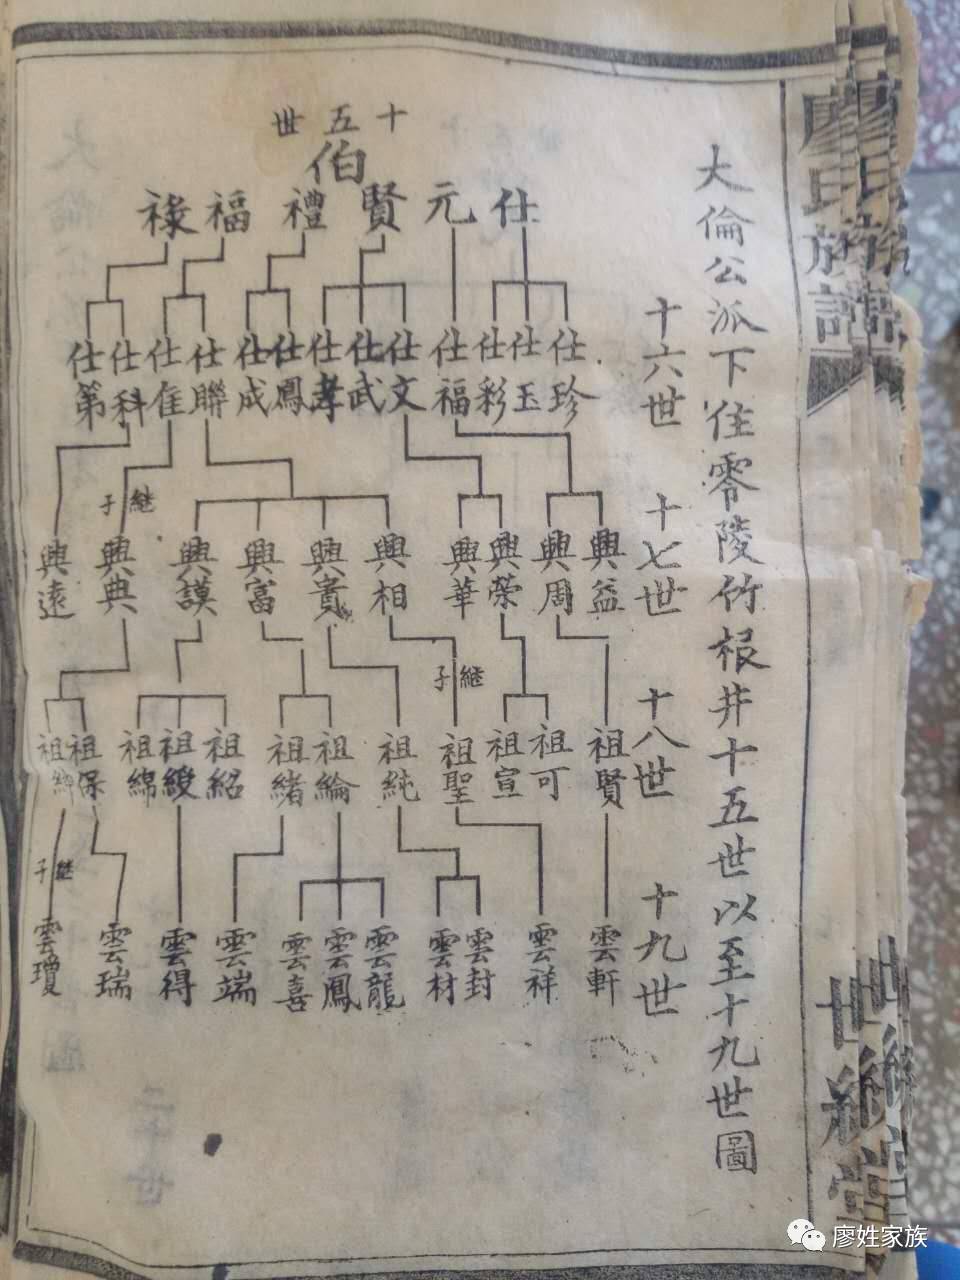 廖氏族譜
世綵堂
大倫公派下住零陵竹根井十五世以至十九世圖
十五世
伯
仕 元 賢 禮 福 祿
十六世
仕珍 仕玉 仕彩 仕福 仕文 仕武 仕孝 仕鳳 仕成 仕聯 仕隹 仕科 仕第
十七世
興益 興周 興榮 興華 興相 興貴 興富 興謨 興典 興遠
繼子
十八世
祖賢 祖可 祖宣 祖聖 祖純 祖綸 祖緒 祖紹 祖綬 祖綿 祖保 祖紳
繼子
十九世
雲軒 雲祥 雲封 雲材 雲龍 雲鳳 雲喜 雲端 雲得 雲瑞 雲瓊
繼子
廖姓家族